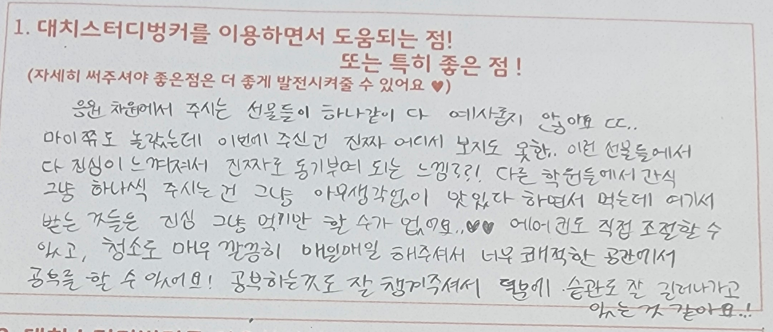 1. 대치스터디벙커를 이용하면서 도움되는 점!
또는 특히 좋은 점!
(자세히 써주셔야 좋은점은 더 좋게 발전시켜줄 수 있어요 ♥)
응원 차원에서 주시는 선물들이 하나같이 다 예사롭지 않아요 ㄷㄷ..
마이쮸도 놀랐는데 이번에 주신건 진짜 어디서 보지도 못한.. 이런 선물들에서
다 진심이 느껴져서 진짜로 동기부여 되는 느낌ㄹㄹ! 다른 학원들에서 간식
그냥 하나씩 주시는 건 그냥 아무생각없이 맛있다 하면서 먹는데 여기서
받는 것들은 진심 그냥 먹기만 할 수가 없어요..♥♥ 에어컨도 직접 조절할 수
있고, 청소도 매우 깔끔히 매일매일 해주셔서 너무 쾌적한 공간에서
공부를 할 수 있어요! 공부하는것도 잘 챙겨주셔서 덕분에 습관도 잘 길러나가고
있는 것 같아요..!